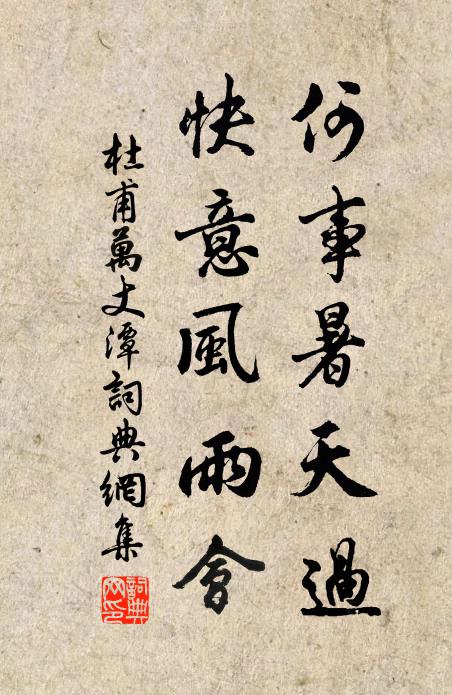 何事暑天過
快意風雨會
杜甫萬丈潭詞典網集
詞典网印